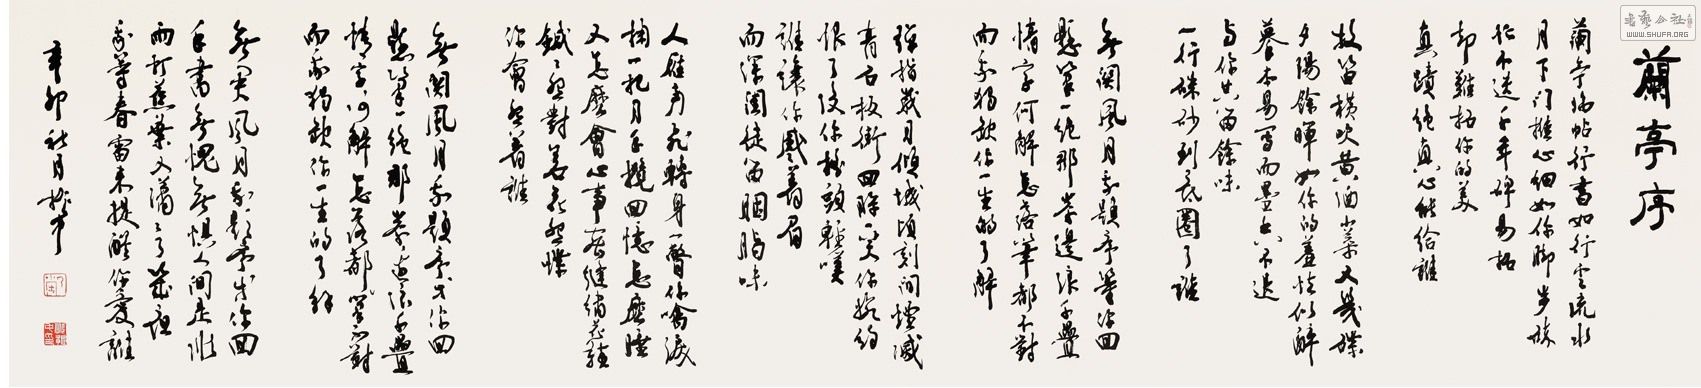 蘭亭序
蘭亭臨帖行書如行雲流水
月下門推心細如你腳步碎
忙不迭千年碑易拓
卻難拓你的美
真蹟絕真心能給誰
牧笛橫吹黃酒小菜又幾碟
夕陽餘暉如你的羞怯似醉
摹本易寫而墨香不退
與你共留餘味
一行硃砂到底圈了誰
無關風月我題序等你回
懸筆一絕那岸邊浪千疊
情字何解怎落筆都不對
而我獨缺你一生的了解
彈指歲月傾城頃刻間煙滅
青石板街回眸一笑你婉約
恨了沒你搖頭輕嘆
誰讓你蹙著眉
而深閨徒留胭脂味
人雁南飛轉身一瞥你噙淚
掬一把月手攬回憶怎麼睡
又怎麼會心事密縫繡花鞋
鍼鍼怨對若花怨蝶
你會怨著誰
無關風月我題序等你回
懸筆一絕那岸邊浪千疊
情字何解怎落筆都不對
而我獨缺你一生的了解
無關風月我題序等你回
手書無愧無懼人間是非
雨打蕉葉又瀟瀟了幾夜
我等春雷來提醒你愛誰
辛卯秋月
書藝公社
WWW.SHUFA.ORG